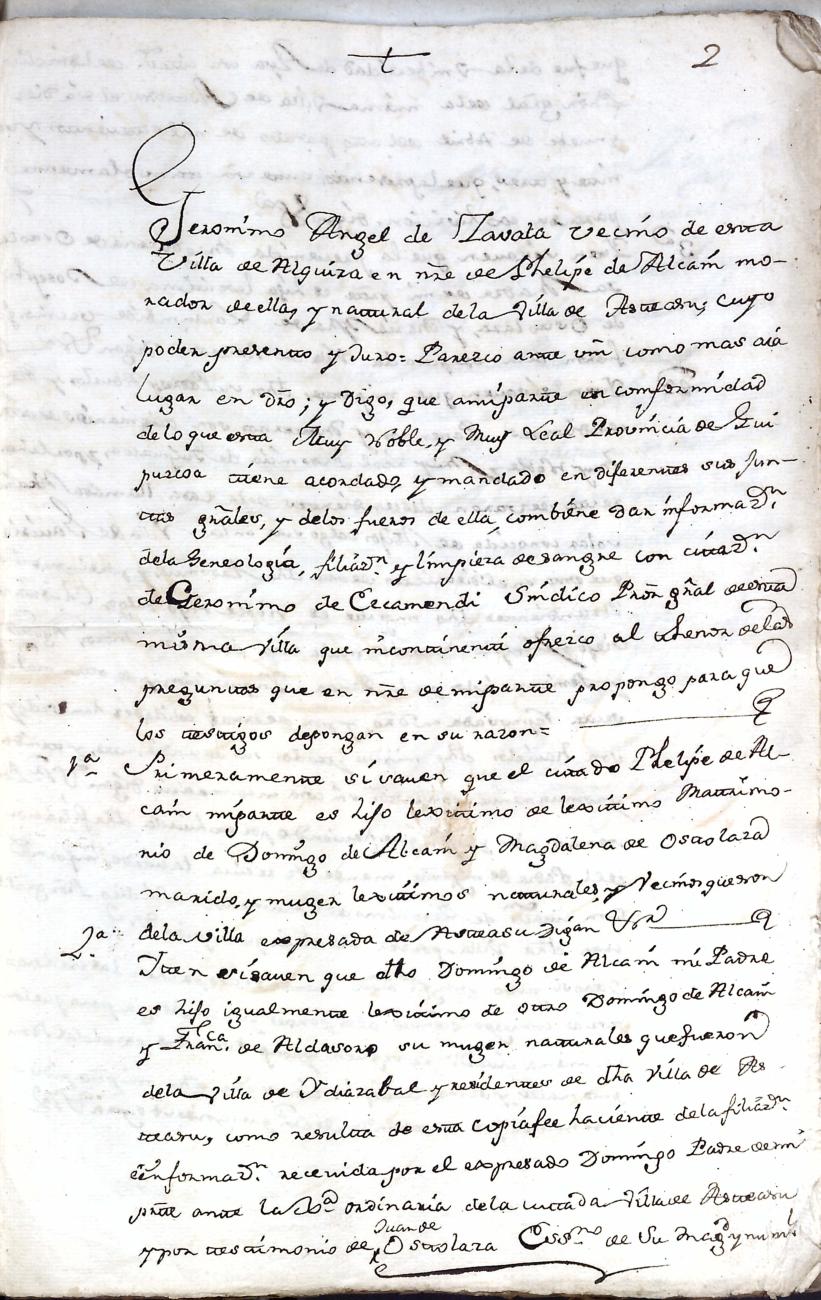 2
Geronimo Angel de Zavala vecino de esta
Villa de Alquiza en nre de Phelipe de Alcain mo-
rador de ella, y natural de la Villa de Asteasu; cuyo
poder presento y Juro= Parezco ante vm como mas aia
lugar en dro; y Digo, que amiparte en comformidad
delo que esta Muy Noble, y Muy Leal Provincia de Gui
puzcoa tiene acordado, y mandado en diferentes sus Jun-
tas grales, y delos fueros de ella, combiene dar informazn
dela Geneologia, filiazn y limpieza desangre con citazn
de Geronimo de Cecamendi Sindico Pror gral de esta
misma Villa que incontinenti ofrezco al thenor de las
preguntas que en nre de miparte propongo para que
los testigos depongan en su razon=
1a Primeramente si saven que el citado Phelipe de Al-
cain miparte es hijo lexitimo de lexitimo Matrimo-
nio de Domingo de Alcain y Magdalena de Ostolaza
marido, y muger lexitimos naturales, y Vecinos que son
dela villa expresada de Asteasu Digan
2a Iten si saven que dho Domingo de Alcain mi Padre
es hijo igualmente lexitimo de otro Domingo de Alcain
y Franca de Aldasoro su muger naturales que fueron
dela Villa de Ydiazabal y residentes de dha Villa de As-
teasu, como resulta de esta copiafee haciente dela filiazn
e informazn recevida por el expresado Domingo Padre de mi
prte ante la Xa ordinaria dela citada Villa de Asteasu
y por testimonio de Juan de Ostolaza Essno de Su Magd y numo